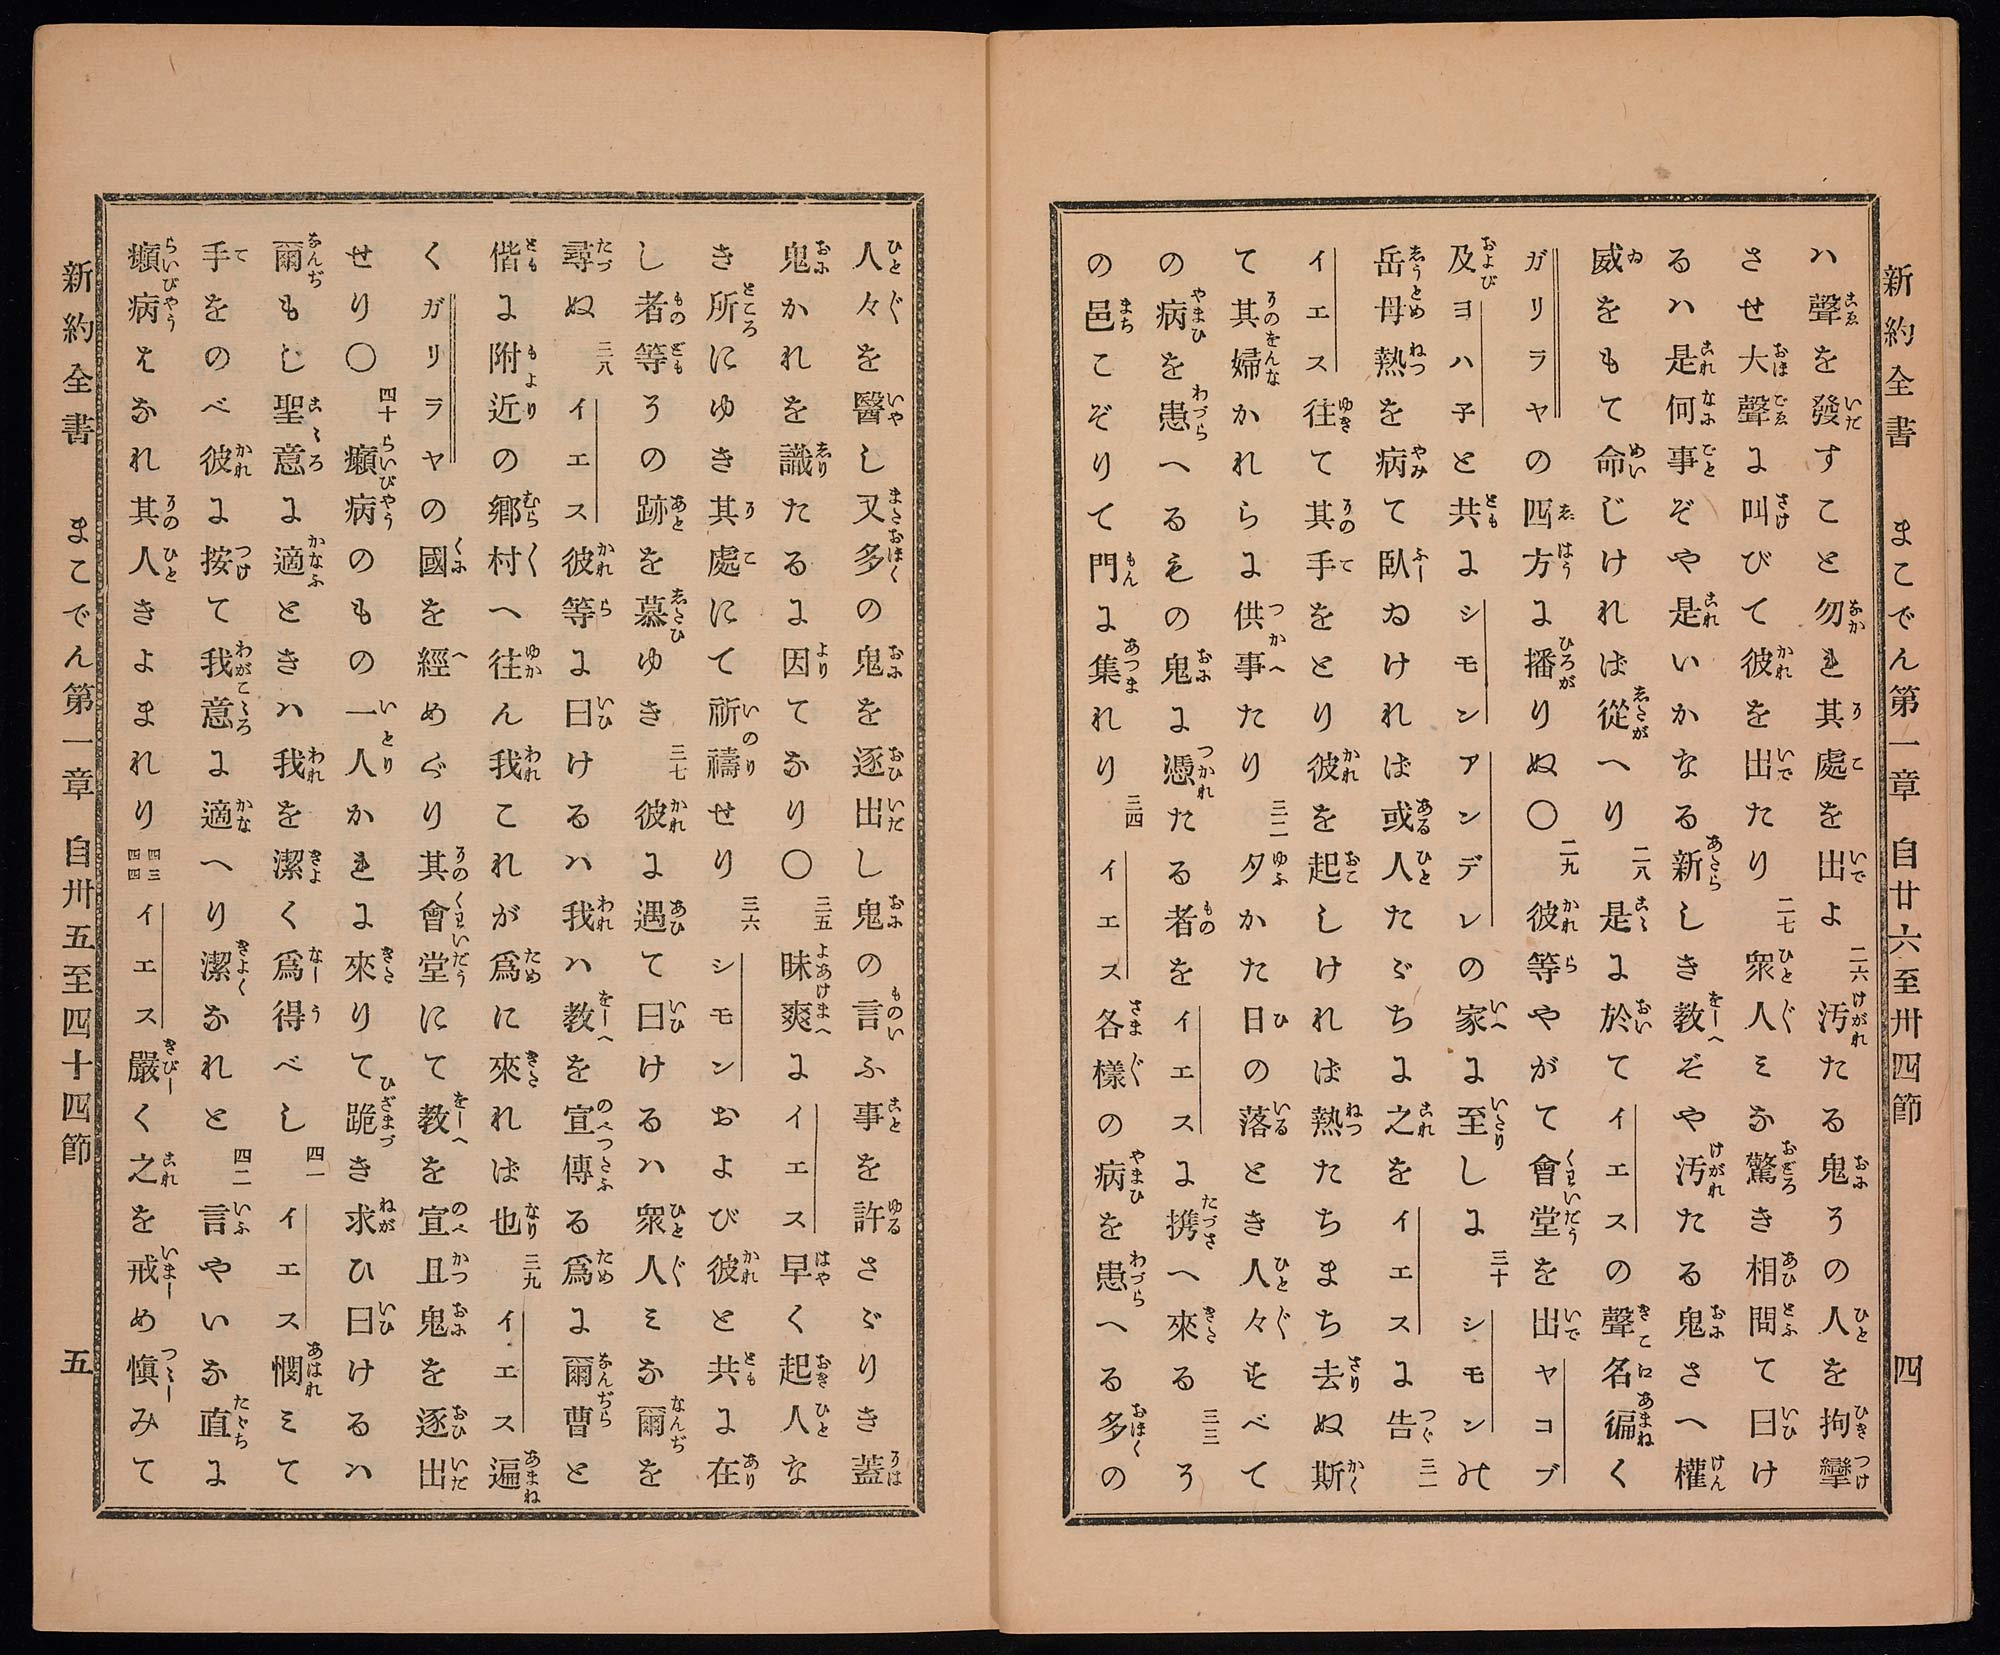 新約全書　まこでん第一章　自廿六至卅四節　四
ハ聲を發すこと勿れ其處を出よ二六汚たる鬼その人を拘攣
させ大聲に叫びて彼を出たり二七衆人ミな驚き相問て曰け
るハ是何事ぞや是いかなる新しき教ぞや汚たる鬼さへ權
威をもて命じければ從へり二八是に於てイエスの聲名徧く
ガリラヤの四方に播りぬ〇二九彼等やがて會堂を出ヤコブ
及ヨハ子と共にシモンアンデレの家に至しに三十シモンの
岳母熱を病て臥ゐければ或人たゞちに之をイエスに告三一
イエス往て其手をとり彼を起しければ熱たちまち去ぬ斯
て其婦かれらに供事たり三二夕かた日の落とき人々すべて
の病を患へるもの鬼に憑たる者をイエスに携へ來る三三そ
の邑こぞりて門に集れり三四イエス各樣の病を患へる多の
人々を醫し又多の鬼を逐出し鬼の言ふ事を許さゞりき蓋
鬼かれを識たるに因てなり〇三五昧爽にイエス早く起人な
き所にゆき其處にて祈禱せり三六シモンおよび彼と共に在
し者等その跡を慕ゆき三七彼に遇て曰けるハ衆人ミな爾を
尋ぬ三八イエス彼等に曰けるハ我ハ教を宣傳る爲に爾曹と
偕に附近の郷村へ往ん我これが爲に來れば也三九イエス遍
くガリラヤの國を經めぐり其會堂にて教を宣且鬼を逐出
せり〇四十癩病のもの一人かれに來りて跪き求ひ曰けるハ
爾もし聖意に適ときハ我を潔く爲得べし四一イエス憫ミて
手をのべ彼に按て我意に適へり潔なれと四二言やいな直に
癩病はなれ其人きよまれり四三四四イエス嚴く之を戒め愼みて
新約全書　まこでん第一章　自卅五至四十四節　五